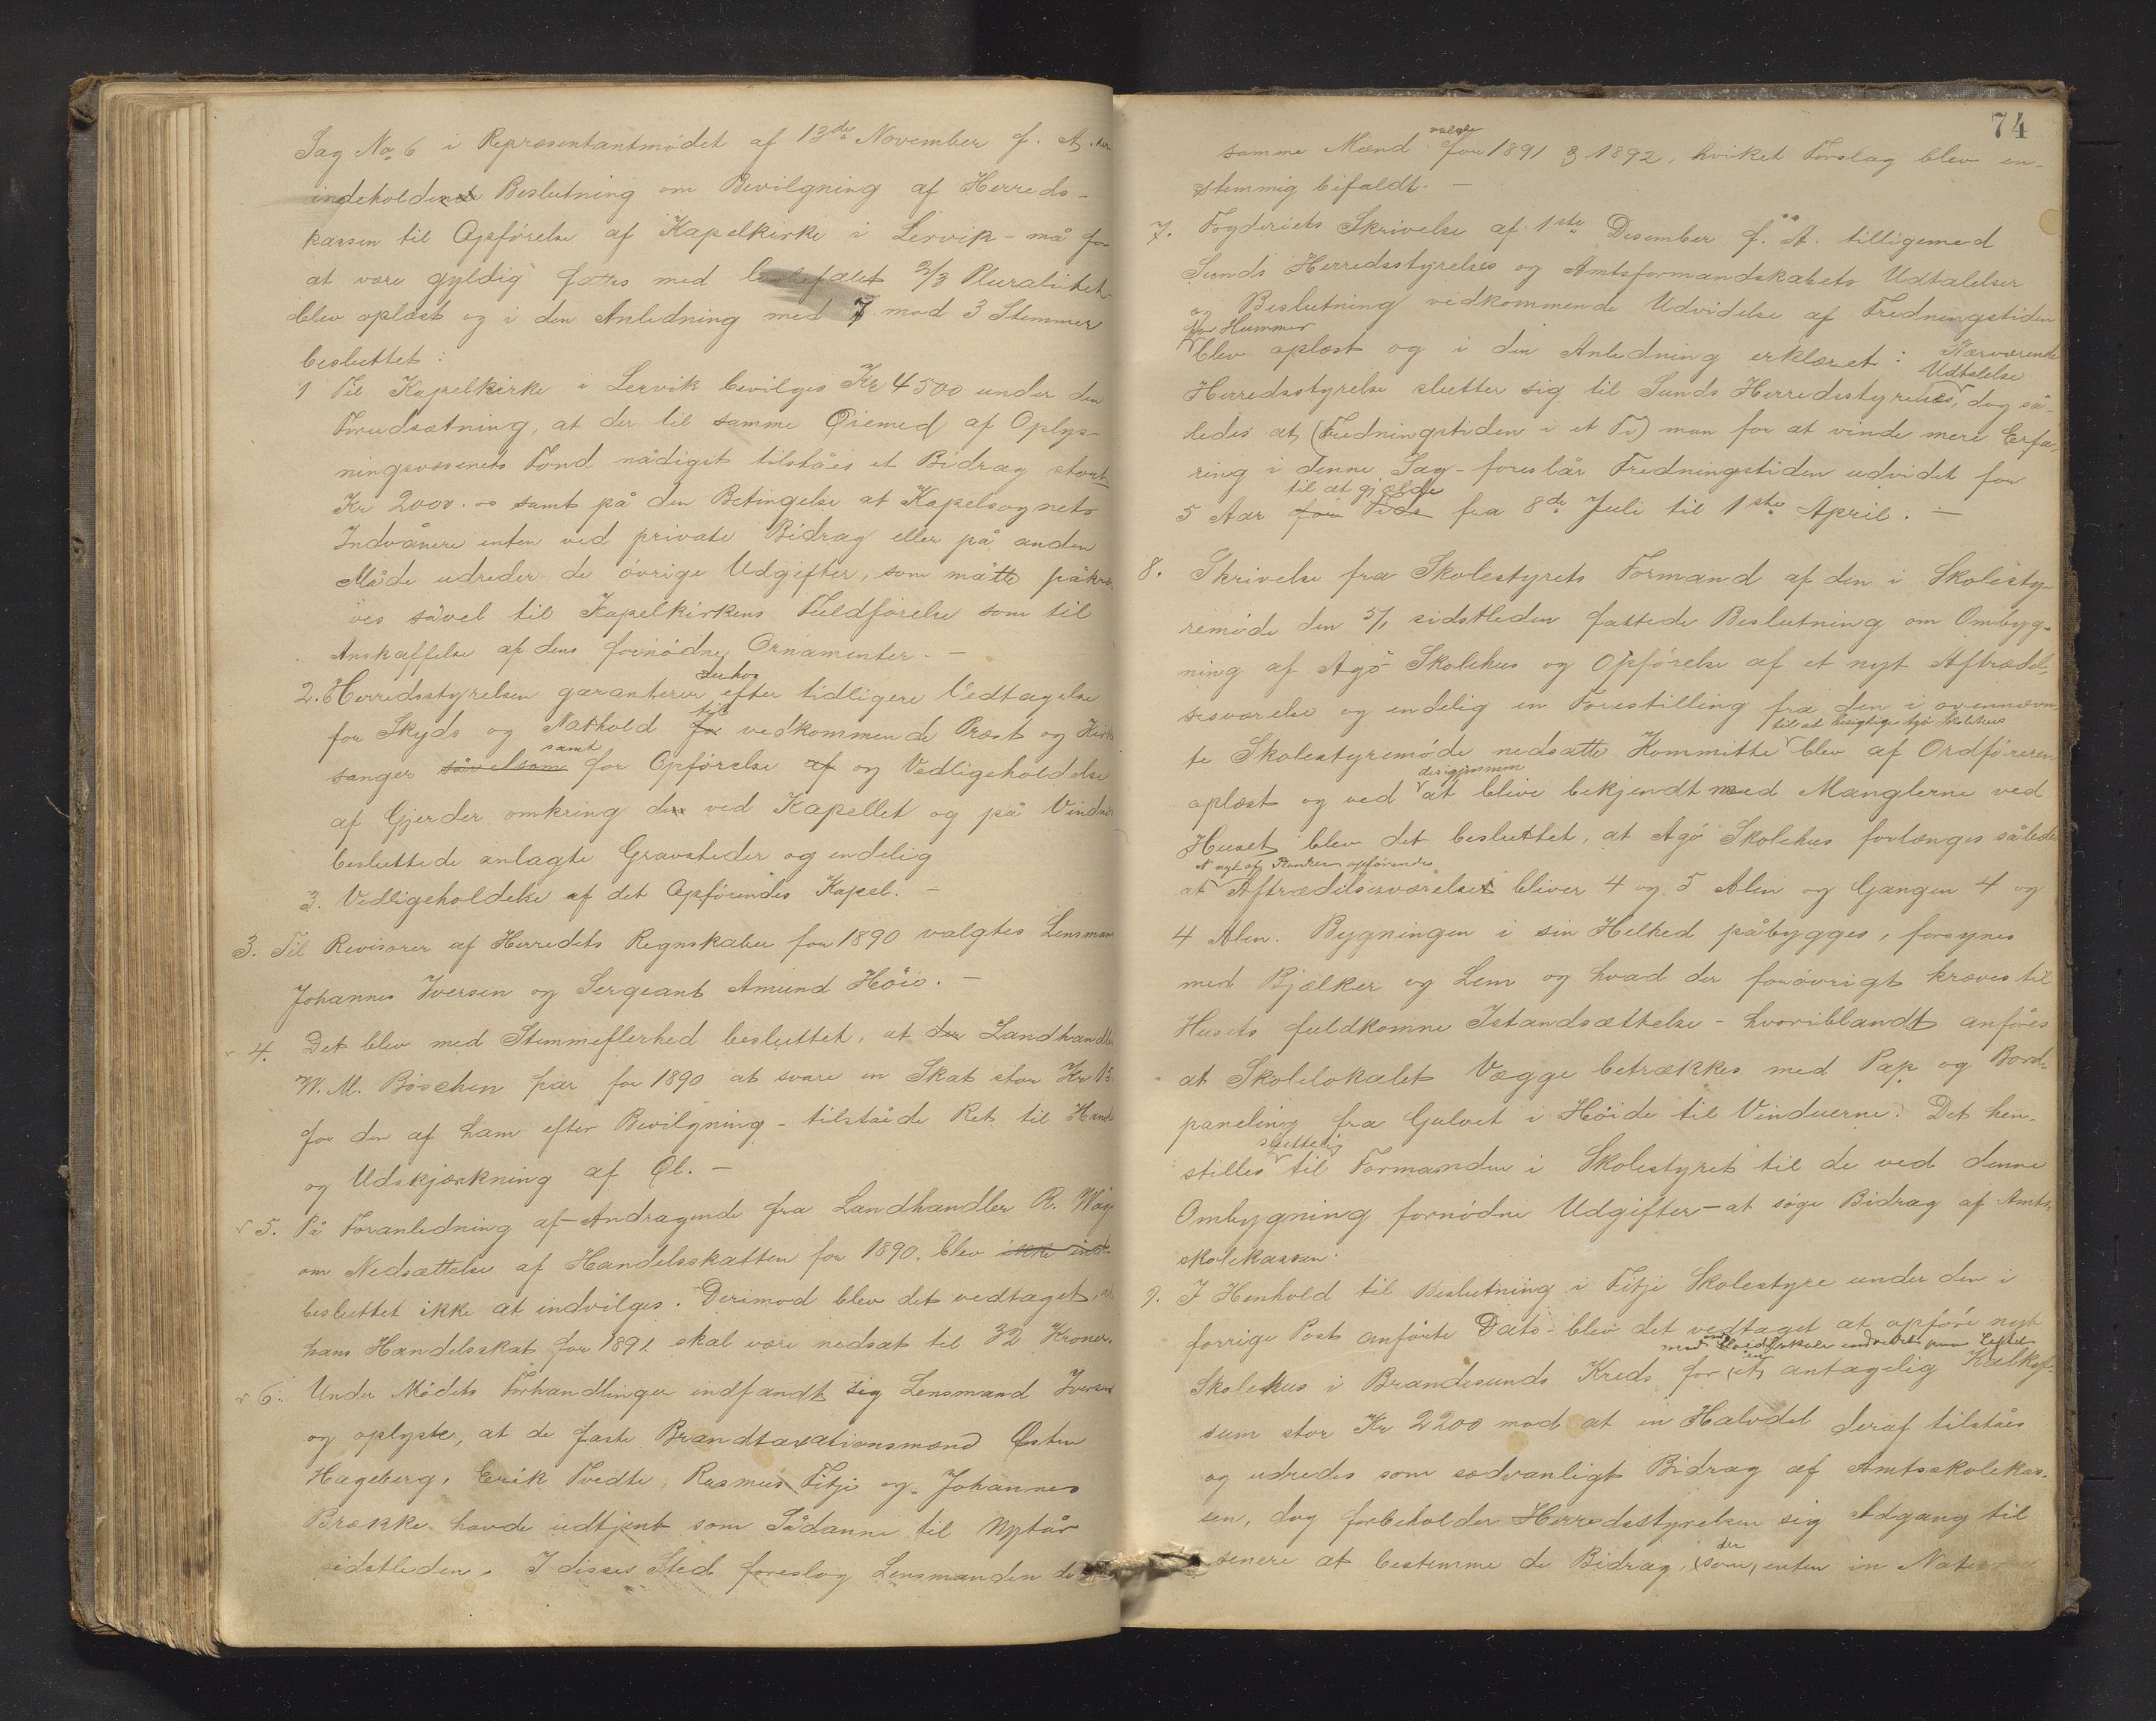 Sag No 6 i Repræsentantmødet af 13de November f. A.
indeholdende Beslutning om Bevilgning af Herreds-
kassen til Opførelse af Kapelkirke i Lervik - må for
at være gyldig fattes med 2/3 Pluralitet
blev oplæst og i den Anledning med 7 mod 3 Stemmer
besluttet:
1 Til Kapelkirke i Lervik bevilges Kr 4500 under den
Forudsætning, at der til samme Øiemed af Oplys-
ningsvæsenets Fond nådigst tilståes et Bidrag stort
Kr 2000.00 samt på den Betingelse at Kapelsognets
Indvånere enten ved private Bidrag eller på anden
Måde udreder de øvrige Udgifter, som måtte påkræ-
ves såvel til Kapelkirkens Fuldførelse som til
Anskaffelse af dens fornødne Ornamenter. -
2. Herredsstyrelsen garanterer derhos efter tidligere Vedtagelse
for Skyds og Nathold for til vedkommende Præst og Kirke
sanger såvelsom samt for Opførelse af og Vedligeholdelse
af Gjerder omkring den ved Kapellet og på
besluttede anlagte Gravsteder og endelig
3. Vedligeholdelse af det Opførendes Kapel. -
3. Til Revisorer af Herredets Regnskaber for 1890 valgtes Lensmand
Johannes Iversen og Sergeant Amund Høie. -
4. Det blev med Stemmeflerhed besluttet, at der Landhandler
W. M. Böschen har for 1890 at svare en Skat stor Kr
for den af ham efter Bevilgning - tilståede Ret til Handel
og Udskjænkning af Øl. -
5. På Foranledning af Andragende fra Landhandler R.
om Nedsættelse af Handelsskatten for 1890. blev ikke ind-
besluttet ikke at indvilges. Derimod blev det vedtaget, at
hans Handelsskat for 1891 skal være nedsat til 32 Kroner.
6. Under Mødets Forhandlinger indfandt sig Lensmand Iversen
og oplyste, at de faste Brandtaxationsmænd Østen
Hageberg, Erik Tvedte, Rasmus Fitje og Johannes
Brække havde udtjent som Sådanne til Nytår
sidstleden. I disses Sted foreslog Lensmanden de
74
samme Mænd valgte for 1891 & 1892, hvilket Forslag blev en-
stemmig bifaldt. -
7. Fogderiets Skrivelse af 1ste Desember f. A. tilligemed
Sunds Herredsstyrelses og Amtsformandskabets Udtalelser
og Beslutning vedkommende Udvidelse af Fredningstiden
for Hummer
blev oplæst og i den Anledning erklæret: Nærværende
Herredsstyrelse slutter sig til Sunds Herredsstyrelses Udtalelse, dog så-
ledes at (Fredningstiden i et Ti) man for at vinde mere Erfa-
ring i denne Sag - foreslår Fredningstiden udvidet for
5 Aar for Tide til at gjælde fra 8de Juli til 1ste April. -
8. Skrivelse fra Skolestyrets Formand af den i Skolesty-
remøde den 5/1 sidstleden fattede Beslutning om Ombyg-
ning af Agø Skolehus og Opførelse af et nyt Aftrædel-
sesværelse og endelig en Forestilling fra den i ovennævn-
te Skolestyremøde nedsatte Kommitte til at besigtige Agø Skolehus blev af Ordføreren
oplæst og ved derigjennem at blive bekjendt med Manglerne ved
Huset blev det besluttet, at Agø Skolehus forlænges således
at nyt af Planker opførendes Aftrædelsesværelset bliver 4 og 5 Alen og Gangen 4 og
4 Alen. Bygningen i sin Helhed påbygges, forsynes
med Bjælker og Lem og hvad der forøvrigt kræves til
Husets fuldkomne Istandsættelse - hvoriblandt anføres
at Skolelokalet Vægge betrækkes med Pap og Bord-
paneling fra Gulvet i Høide til Vinduerne. Det hen-
stilles sluttelig til Formanden i Skolestyret til de ved denne
Ombygning fornødne Udgifter - at søge Bidrag af Amts-
skolekassen.
9. I Henhold til Beslutning i Fitje Skolestyre under den i
forrige Post anførte Dato - blev det vedtaget at opføre nyt
Skolehus i Brandesunds Kreds for en antagelig Kalkyl-
sum stor Kr 2200 mod at en Halvdel deraf tilståes
og udredes som sædvanligt Bidrag af Amtsskolekas-
sen, dog forbeholder Herredsstyrelsen sig Adgang til
senere at bestemme de Bidrag, (som) der enten in Natura